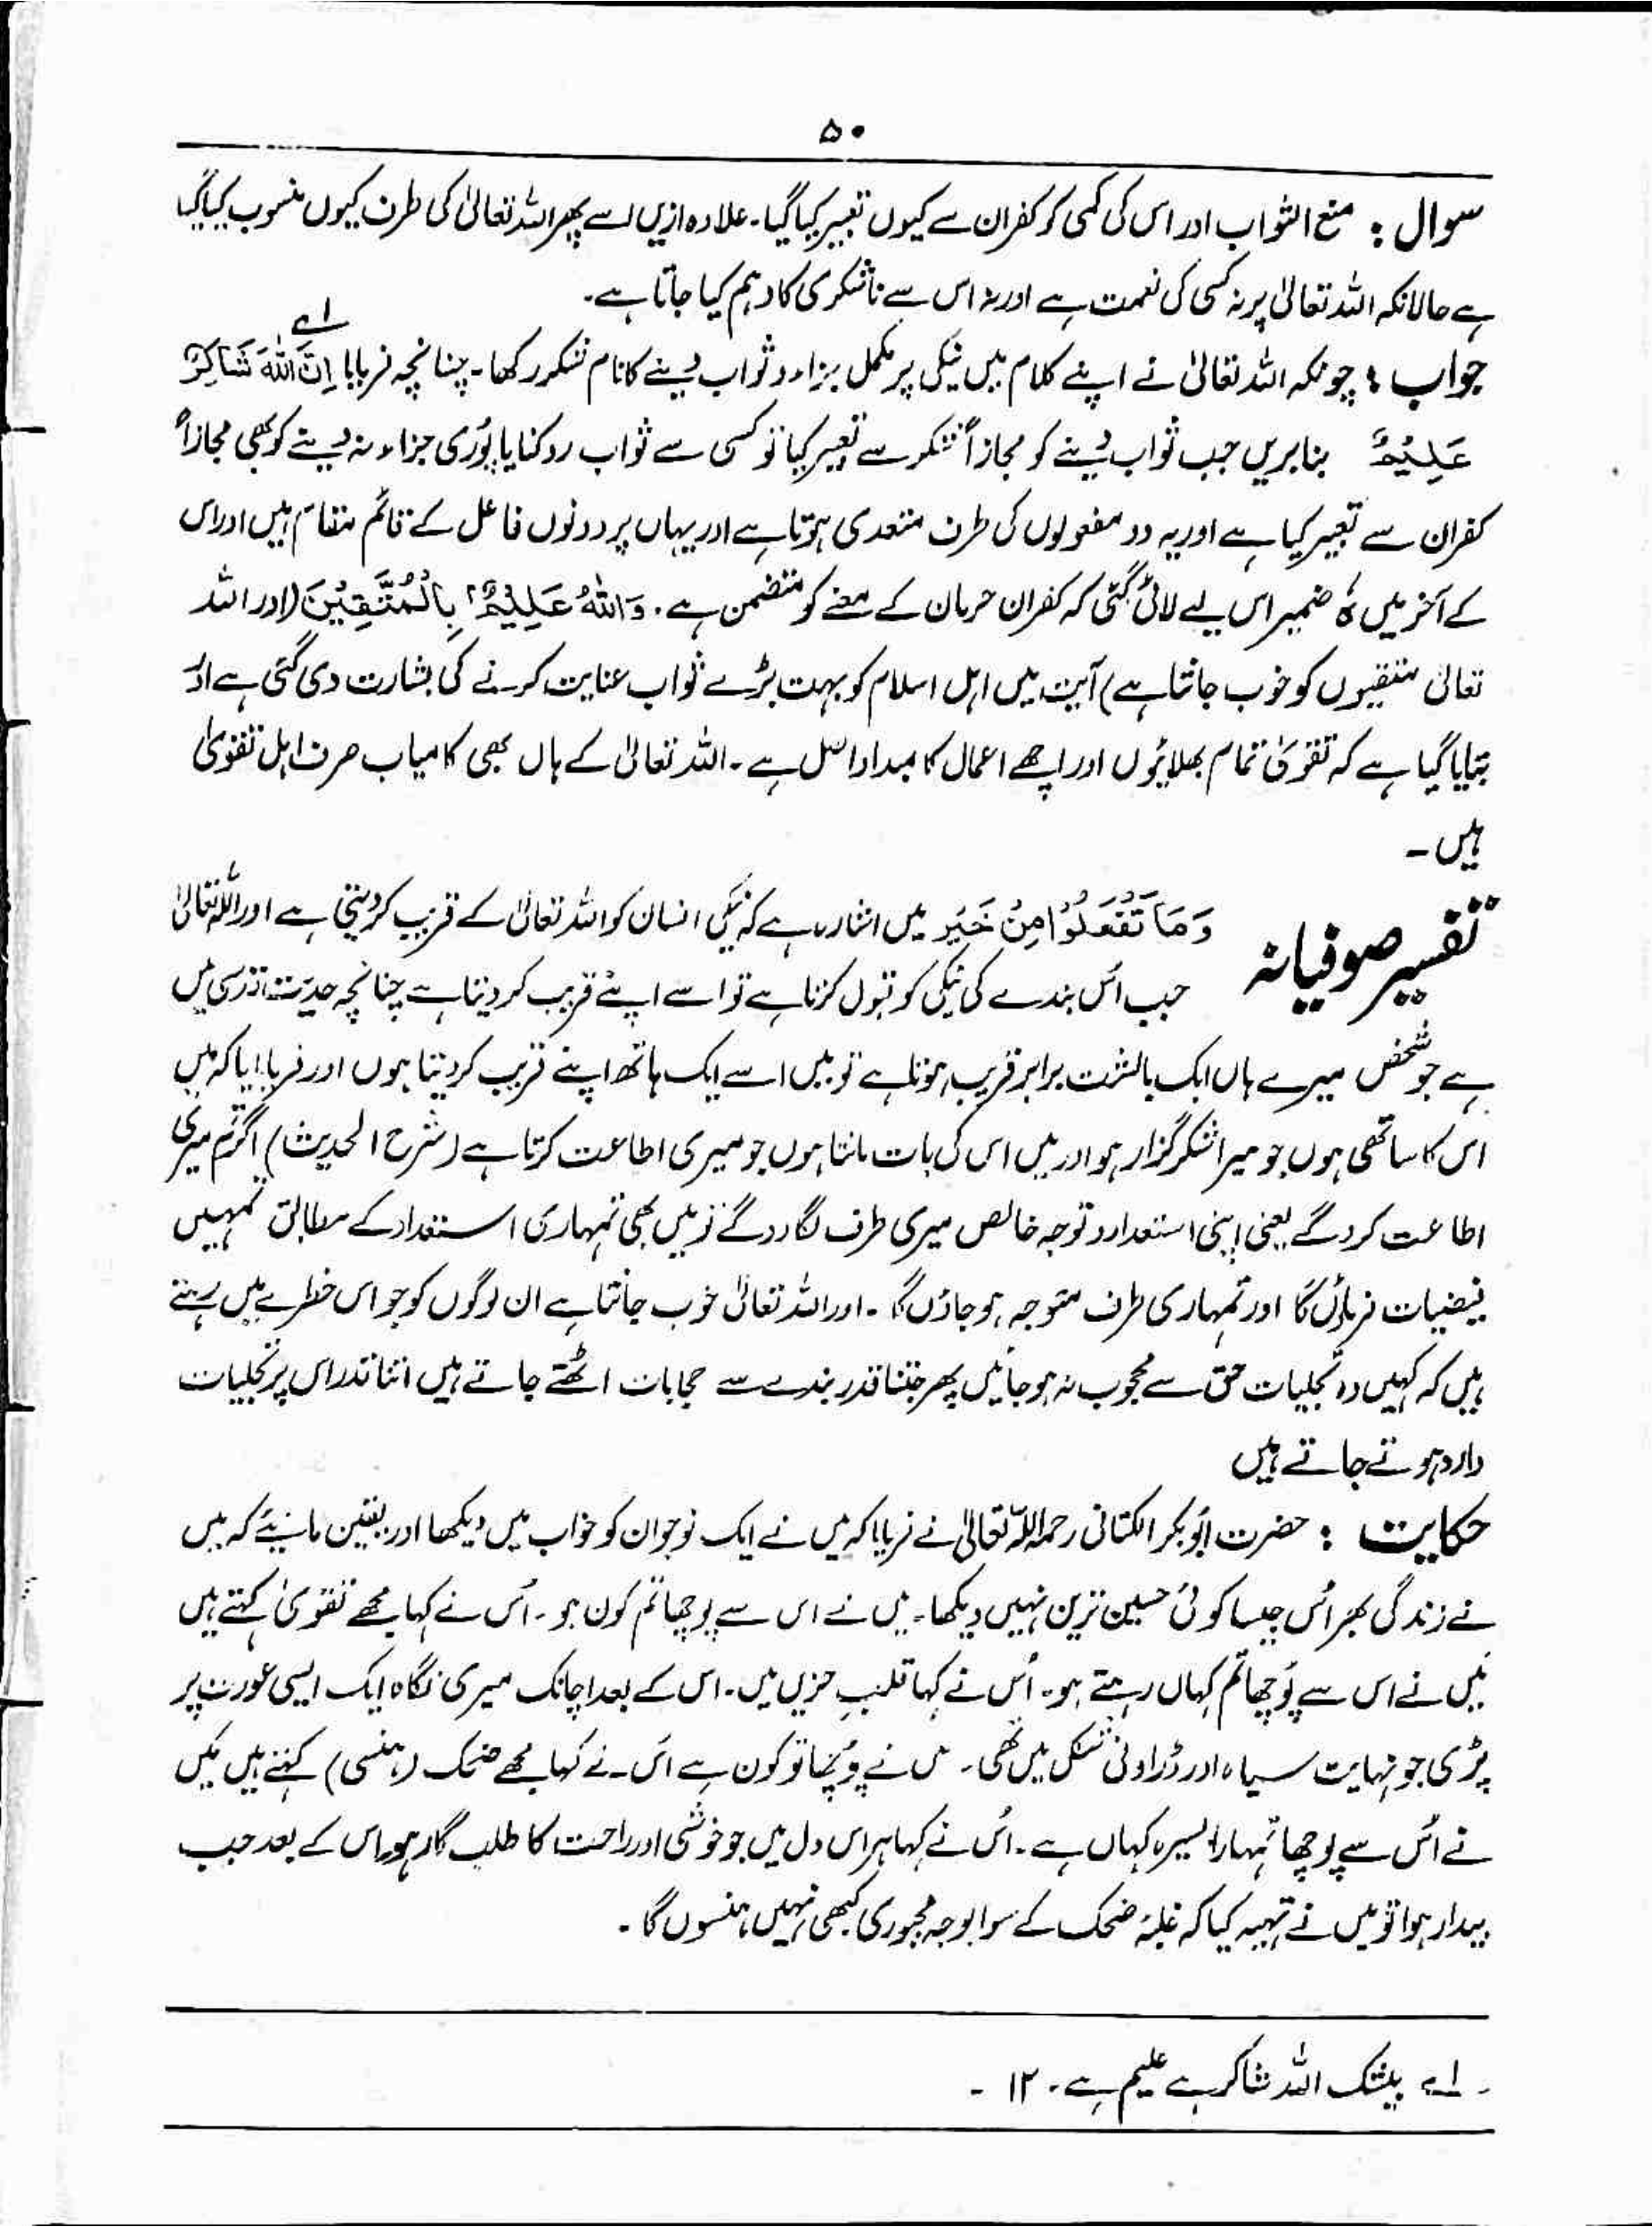 ۵۰
سوال : منع الثواب اور اس کی کمی کو کفران سے کیوں تعبیر کیا گیا۔ علاوہ ازیں اسے پھر اللہ تعالیٰ کی طرف کیوں منسوب کیا گیا
ہے حالانکہ اللہ تعالیٰ پر نہ کسی کی نعمت ہے اور نہ اس سے ناشکری کا وہم کیا جاتا ہے۔
جواب : چونکہ اللہ تعالیٰ نے اپنے کلام میں نیکی پر مکمل جزاء و ثواب دینے کا نام شکر رکھا۔ چنانچہ فرمایا اِنَّ اللّٰهَ شَاكِرٌ ۱ے
عَلِيْمٌ بنا بریں جب ثواب دینے کو مجازاً شکر سے تعبیر کیا تو کسی سے ثواب روکنا یا پوری جزاء نہ دینے کو بھی مجازاً
کفران سے تعبیر کیا ہے اور یہ دو مفعولوں کی طرف متعدی ہوتا ہے اور یہاں پر دونوں فاعل کے قائم مقام ہیں اور اس
کے آخر میں ہٗ ضمیر اس لیے لائی گئی کہ کفران حرمان کے معنے کو متضمن ہے۔ وَاللّٰهُ عَلِيْمٌۢ بِالْمُتَّقِيْنَ (اور اللہ
تعالیٰ متقیوں کو خوب جانتا ہے) آیت میں اہل اسلام کو بہت بڑے ثواب عنایت کرنے کی بشارت دی گئی ہے اور
بتایا گیا ہے کہ تقویٰ تمام بھلائیوں اور اچھے اعمال کا مبدا و اصل ہے۔ اللہ تعالیٰ کے ہاں بھی کامیاب صرف اہل تقویٰ
ہیں۔
تفسیر صوفیانہ وَمَا تَفْعَلُوْا مِنْ خَيْرٍ میں اشارہ ہے کہ نیکی انسان کو اللہ تعالیٰ کے قریب کردیتی ہے اور اللہ تعالیٰ
جب اُس بندے کی نیکی کو قبول کرتا ہے تو اسے اپنے قریب کر دیتا ہے چنانچہ حدیث قدسی میں
ہے جو شخص میرے ہاں ایک بالشت برابر قریب ہوتا ہے تو میں اسے ایک ہاتھ اپنے قریب کر دیتا ہوں اور فرمایا کہ میں
اس کا ساتھی ہوں جو میرا شکر گزار ہو اور میں اس کی بات مانتا ہوں جو میری اطاعت کرتا ہے (شرح الحدیث) اگر تم میری
اطاعت کرو گے یعنی اپنی استعداد و توجہ خالص میری طرف لگا دو گے تو میں بھی تمہاری استعداد کے مطابق تمہیں
فیضیات فرماؤں گا اور تمہاری طرف متوجہ ہو جاؤں گا۔ اور اللہ تعالیٰ خوب جانتا ہے ان لوگوں کو جو اس خطرے میں رہتے
ہیں کہ کہیں وہ تجلیات حق سے محجوب نہ ہو جائیں پھر جتنا قدر بندے سے حجابات اٹھتے جاتے ہیں اتنا قدر اس پر تجلیات
وارد ہوتے جاتے ہیں
حکایت : حضرت ابوبکر الکتانی رحمہ اللہ تعالیٰ نے فرمایا کہ میں نے ایک نوجوان کو خواب میں دیکھا اور یقین مانیئے کہ میں
نے زندگی بھر اُس جیسا کوئی حسین ترین نہیں دیکھا۔ میں نے اس سے پوچھا تم کون ہو۔ اُس نے کہا مجھے تقویٰ کہتے ہیں
میں نے اس سے پوچھا تم کہاں رہتے ہو۔ اُس نے کہا قلبِ حزیں میں۔ اس کے بعد اچانک میری نگاہ ایک ایسی عورت پر
پڑی جو نہایت سیاہ اور ڈراؤنی شکل میں تھی۔ میں نے پوچھا تو کون ہے اُس نے کہا مجھے ضحک (ہنسی) کہتے ہیں میں
نے اُس سے پوچھا تمہارا بسیرہ کہاں ہے۔ اُس نے کہا ہر اس دل میں جو خوشی اور راحت کا طلب گار ہو۔ اس کے بعد جب
بیدار ہوا تو میں نے تہیہ کیا کہ غلبۂ ضحک کے سوا بوجہ مجبوری کبھی نہیں ہنسوں گا۔
۱ے بیشک اللہ شاکر ہے علیم ہے۔ ۱۲ -